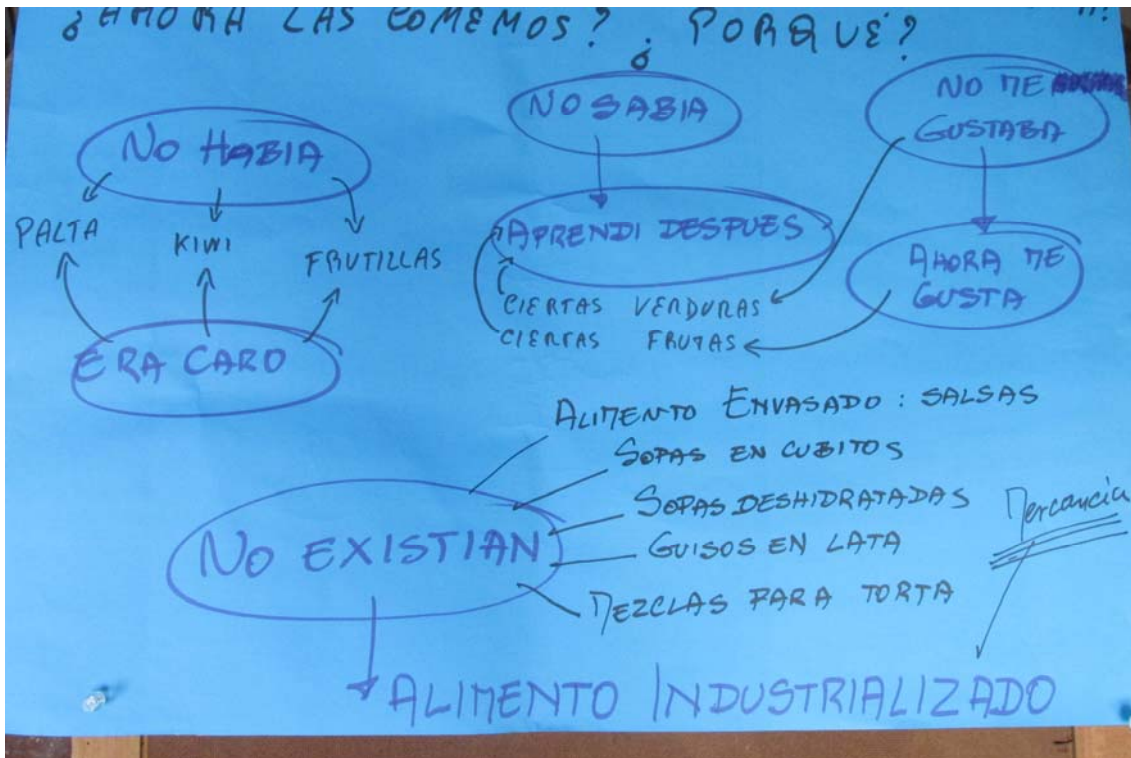 ¿AHORA LAS COMEMOS? ¿PORQUÉ?
NO HABIA
PALTA
KIWI
FRUTILLAS
ERA CARO
NO SABIA
APRENDI DESPUES
CIERTAS VERDURAS
CIERTAS FRUTAS
NO ME
GUSTABA
AHORA ME
GUSTA
NO EXISTIAN
ALIMENTO ENVASADO: SALSAS
SOPAS EN CUBITOS
SOPAS DESHIDRATADAS
GUISOS EN LATA
MEZCLAS PARA TORTA
Mercancía
ALIMENTO INDUSTRIALIZADO